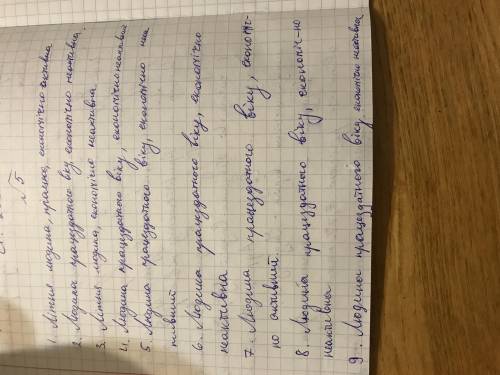 √5
1. Літня людина, працює, економічно активна
2. Людина працездатного віку, економічно неактивна.
3. Літня людина, економічно неактивна.
4. Людина працездатного віку, економічно неактивний
5. Людина працездатного віку, економічно неак
тивний
6. Людина працездатного віку, економічно
неактивна
7. Людина працездатного віку, економіч-
но активний
8. Людина працездатного віку, економіч-но
неактивна
9. Людина працездатного віку, економічно неактивна